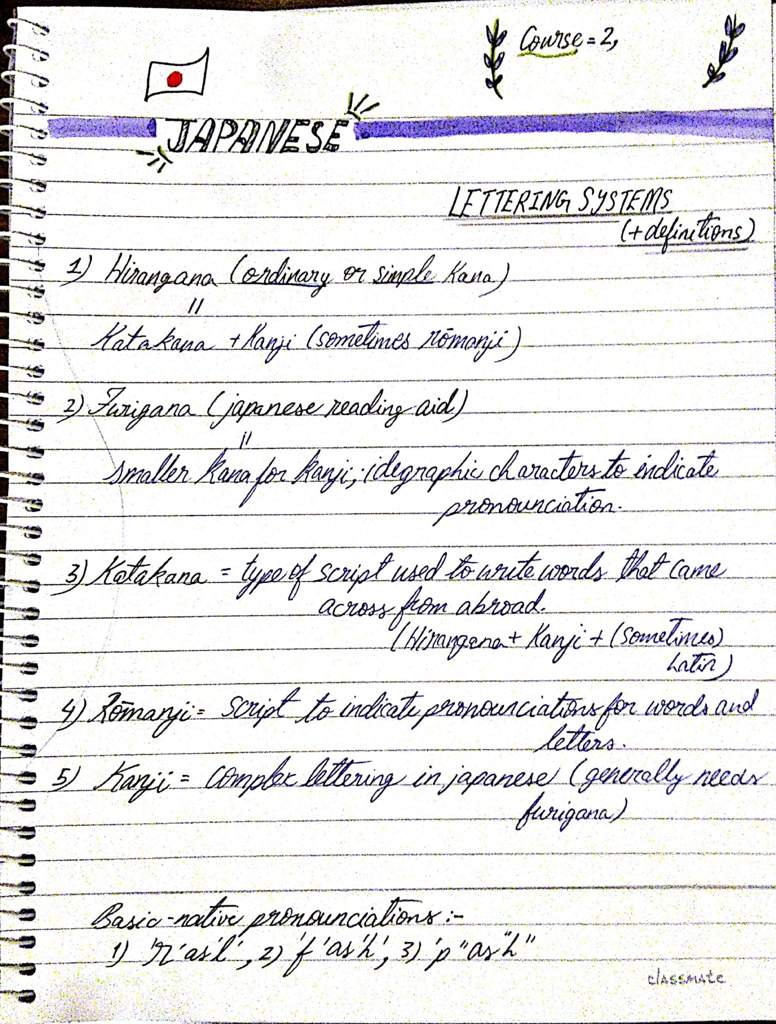 Course = 2,
JAPANESE
LETTERING SYSTEMS
(+ definitions)
1) Hirangana (ordinary or simple Kana)
=
Katakana + Kanji (sometimes rōmanji)
2) Furigana (japanese reading aid)
=
smaller kana for kanji; idegraphic characters to indicate
pronounciation.
3) Katakana = type of script used to write words that came
across from abroad.
(Hirangana + Kanji + (sometimes)
Latin)
4) Rōmanji = script to indicate pronounciations for words and
letters.
5) Kanji = complex lettering in japanese (generally needs
furigana)
Basic-native pronounciations :-
1) 'r' as 'l', 2) 'f' as 'h', 3) 'p" as "h"
classmate